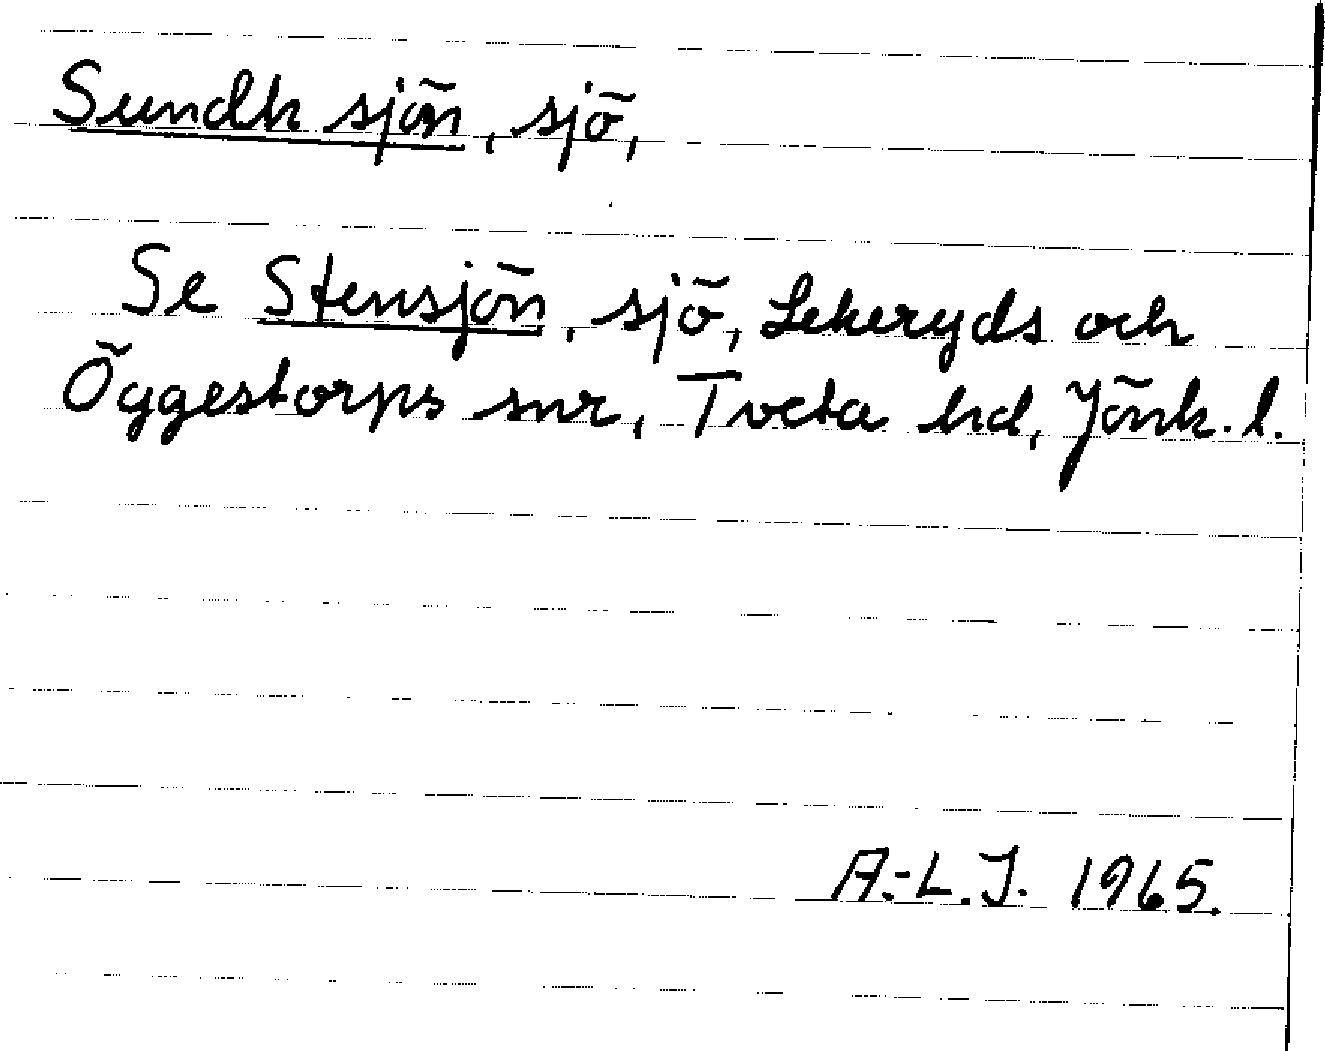 Sundh sjön, sjö,
Se Stensjön, sjö, Lekeryds och
Öggestorps snr, Tveta hd, Jönk. l.
A.-L. J. 1965.